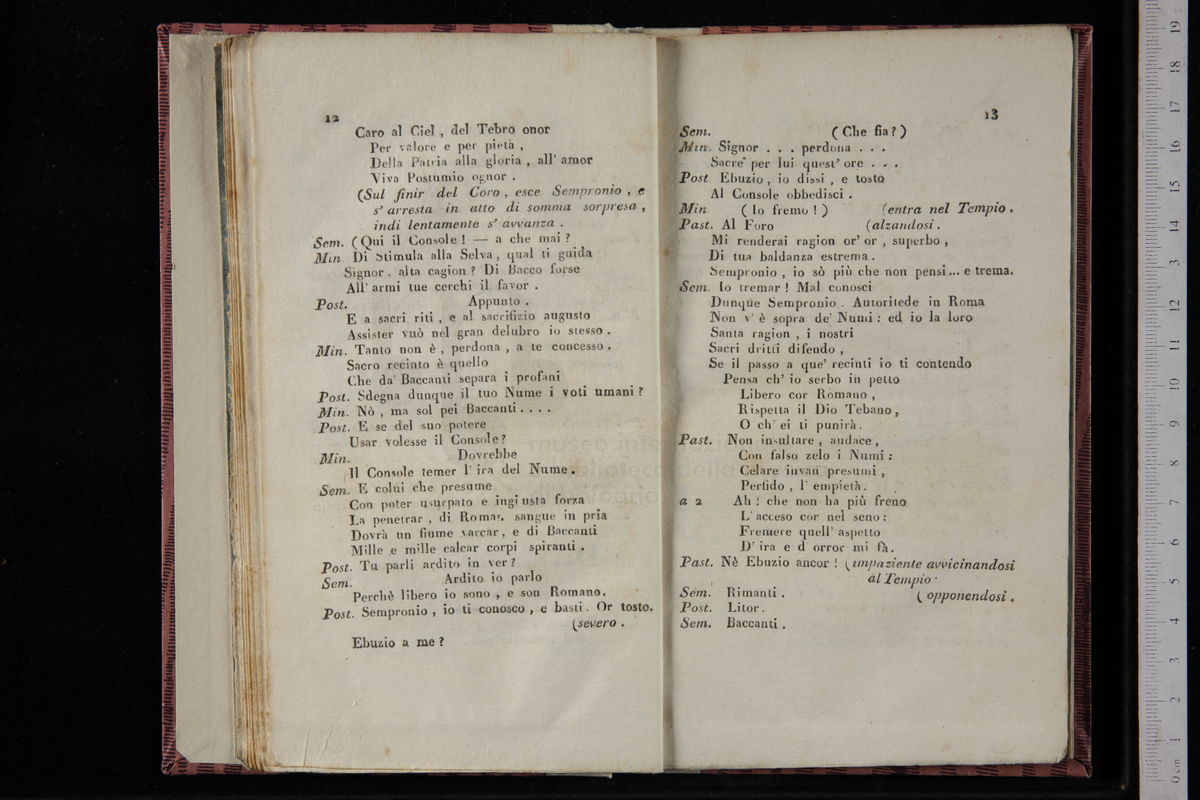 12
Caro al Ciel , del Tebro onor
Per valore e per pietà ,
Della Patria alla gloria , all' amor
Viva Postumio ognor .
(Sul finir del Coro , esce Sempronio , e
s' arresta in atto di somma sorpresa ,
indi lentamente s' avvanza .
Sem. (Qui il Console ! — a che mai ?
Min Di Stimula alla Selva , qual ti guida
Signor , alta cagion ? Di Bacco forse
All' armi tue cerchi il favor .
Post. Appunto .
E a sacri riti , e al sacrifizio augusto
Assister vuò nel gran delubro io stesso .
Min. Tanto non è , perdona , a te concesso .
Sacro recinto è quello
Che da' Baccanti separa i profani
Post. Sdegna dunque il tuo Nume i voti umani ?
Min. Nò , ma sol pei Baccanti . . . .
Post. E se del suo potere
Usar volesse il Console ?
Min. Dovrebbe
Il Console temer l' ira del Nume .
Sem. E colui che presume
Con poter usurpato e ingiusta forza
La penetrar , di Roman sangue in pria
Dovrà un fiume varcar , e di Baccanti
Mille e mille calcar corpi spiranti .
Post. Tu parli ardito in ver ?
Sem. Ardito io parlo
Perchè libero io sono , e son Romano .
Post. Sempronio , io ti conosco , e basti . Or tosto .
(severo .
Ebuzio a me ?
13
Sem. ( Che fia ? )
Min. Signor . . . perdona . . .
Sacre per lui quest' ore . . .
Post Ebuzio , io dissi , e tosto
Al Console obbedisci .
Min ( Io fremo ! ) (entra nel Tempio .
Past. Al Foro (alzandosi .
Mi renderai ragion or' or , superbo ,
Di tua baldanza estrema .
Sempronio , io sò più che non pensi ... e trema .
Sem. Io tremar ! Mal conosci
Dunque Sempronio . Autoritede in Roma
Non v' è sopra de' Numi : ed io la loro
Santa ragion , i nostri
Sacri dritti difendo ,
Se il passo a que' recinti io ti contendo
Pensa ch' io serbo in petto
Libero cor Romano ,
Rispetta il Dio Tebano ,
O ch' ei ti punirà .
Past. Non insultare , audace ,
Con falso zelo i Numi :
Celare invan presumi ,
Perfido , l' empietà .
a 2 Ah ! che non ha più freno
L' acceso cor nel seno :
Fremere quell' aspetto
D' ira e d orror mi fà .
Past. Nè Ebuzio ancor ! (impaziente avvicinandosi
al Tempio .
Sem. Rimanti . ( opponendosi .
Post. Litor .
Sem. Baccanti .